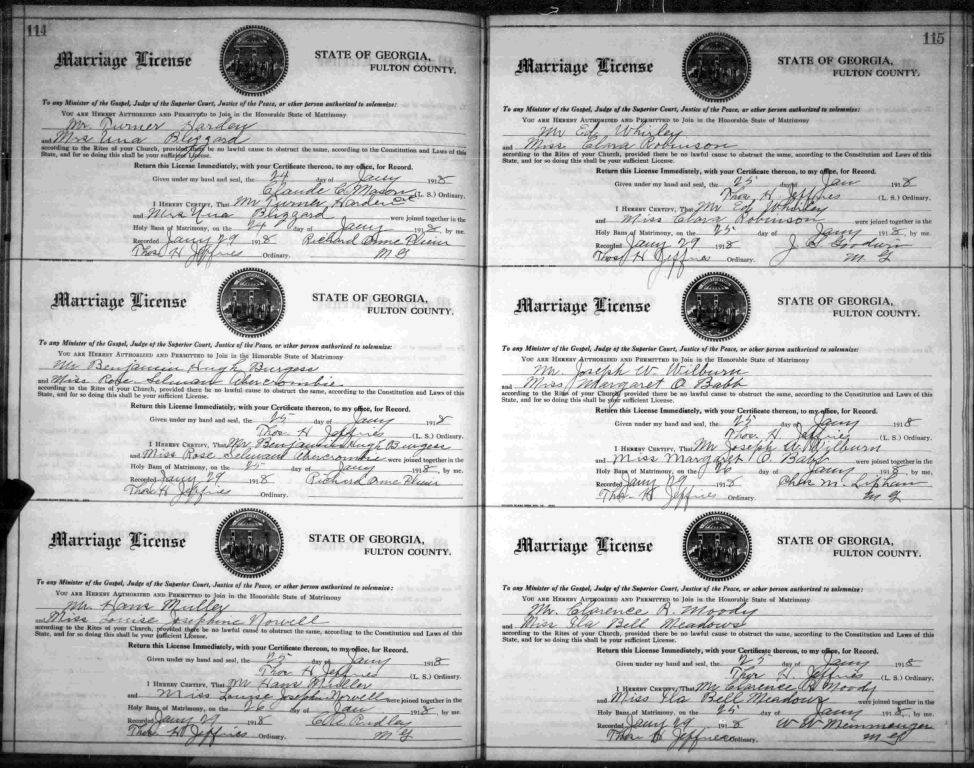 114
Marriage License
STATE OF GEORGIA,
FULTON COUNTY.
To any Minister of the Gospel, Judge of the Superior Court, Justice of the Peace, or other person authorized to solemnize:
YOU ARE HEREBY AUTHORIZED AND PERMITTED to Join in the Honorable State of Matrimony
Mr Turner Harden
and Mrs Una Blizzard
according to the Rites of your Church, provided there be no lawful cause to obstruct the same, according to the Constitution and Laws of this
State, and for so doing this shall be your sufficient License.
Return this License Immediately, with your Certificate thereon, to my office, for Record.
Given under my hand and seal, the 24 day of Jany 1918
Claude C. Mason (L. S.) Ordinary.
I HEREBY CERTIFY, That Mr Turner Harden
and Mrs Una Blizzard were joined together in the
Holy Bans of Matrimony, on the 24 day of Jany 1918, by me.
Recorded Jany 29 1918 Richard Orme Flinn
Thos H Jeffries Ordinary. M G
Marriage License
STATE OF GEORGIA,
FULTON COUNTY.
To any Minister of the Gospel, Judge of the Superior Court, Justice of the Peace, or other person authorized to solemnize:
YOU ARE HEREBY AUTHORIZED AND PERMITTED to Join in the Honorable State of Matrimony
Mr Benjamin Hugh Burgess
and Miss Rose Selman Abercrombie
according to the Rites of your Church, provided there be no lawful cause to obstruct the same, according to the Constitution and Laws of this
State, and for so doing this shall be your sufficient License.
Return this License Immediately, with your Certificate thereon, to my office, for Record.
Given under my hand and seal, the 25 day of Jany 1918
Thos H Jeffries (L. S.) Ordinary.
I HEREBY CERTIFY, That Mr Benjamin Hugh Burgess
and Miss Rose Selman Abercrombie were joined together in the
Holy Bans of Matrimony, on the 25 day of Jany 1918, by me.
Recorded Jany 29 1918 Richard Orme Flinn
Thos H Jeffries Ordinary.
Marriage License
STATE OF GEORGIA,
FULTON COUNTY.
To any Minister of the Gospel, Judge of the Superior Court, Justice of the Peace, or other person authorized to solemnize:
YOU ARE HEREBY AUTHORIZED AND PERMITTED to Join in the Honorable State of Matrimony
Mr. Hans Mulley
and Miss Louise Josephine Nowell
according to the Rites of your Church, provided there be no lawful cause to obstruct the same, according to the Constitution and Laws of this
State, and for so doing this shall be your sufficient License.
Return this License Immediately, with your Certificate thereon, to my office, for Record.
Given under my hand and seal, the 25 day of Jany 1918
Thos H Jeffries (L. S.) Ordinary.
I HEREBY CERTIFY, That Mr Hans
and Miss Louise Joseph Nowell were joined together in the
Holy Bans of Matrimony, on the 26 day of Jan 1918, by me.
Recorded Jany 29 1918
Thos H Jeffries Ordinary. M G
115
Marriage License
STATE OF GEORGIA,
FULTON COUNTY.
To any Minister of the Gospel, Judge of the Superior Court, Justice of the Peace, or other person authorized to solemnize:
YOU ARE HEREBY AUTHORIZED AND PERMITTED to Join in the Honorable State of Matrimony
Mr Ed Whirley
and Miss Clara Robinson
according to the Rites of your Church, provided there be no lawful cause to obstruct the same, according to the Constitution and Laws of this
State, and for so doing this shall be your sufficient License.
Return this License Immediately, with your Certificate thereon, to my office, for Record.
Given under my hand and seal, the 25 day of Jan 1918
Thos H Jeffries (L. S.) Ordinary.
I HEREBY CERTIFY, That Mr Ed Whirley
and Miss Clara Robinson were joined together in the
Holy Bans of Matrimony, on the 25 day of Jany 1918, by me.
Recorded Jany 29 1918 Goodwin
Thos H Jeffries Ordinary. M G
Marriage License
STATE OF GEORGIA,
FULTON COUNTY.
To any Minister of the Gospel, Judge of the Superior Court, Justice of the Peace, or other person authorized to solemnize:
YOU ARE HEREBY AUTHORIZED AND PERMITTED to Join in the Honorable State of Matrimony
Mr. Joseph W. Wilburn
and Miss Margaret O Babb
according to the Rites of your Church, provided there be no lawful cause to obstruct the same, according to the Constitution and Laws of this
State, and for so doing this shall be your sufficient License.
Return this License Immediately, with your Certificate thereon, to my office, for Record.
Given under my hand and seal, the 25 day of Jany 1918
Thos H Jeffries (L. S.) Ordinary.
I HEREBY CERTIFY, That Mr Joseph W Wilburn
and Miss Margaret O. Babb were joined together in the
Holy Bans of Matrimony, on the 26 day of Jany 1918, by me.
Recorded Jany 29 1918 Chas M. Lipham
Thos H Jeffries Ordinary. M G
Marriage License
STATE OF GEORGIA,
FULTON COUNTY.
To any Minister of the Gospel, Judge of the Superior Court, Justice of the Peace, or other person authorized to solemnize:
YOU ARE HEREBY AUTHORIZED AND PERMITTED to Join in the Honorable State of Matrimony
Mr. Clarence R. Moody
and Miss Ila Bell Meadows
according to the Rites of your Church, provided there be no lawful cause to obstruct the same, according to the Constitution and Laws of this
State, and for so doing this shall be your sufficient License.
Return this License Immediately, with your Certificate thereon, to my office, for Record.
Given under my hand and seal, the 25 day of Jany 1918
Thos H. Jeffries (L. S.) Ordinary.
I HEREBY CERTIFY, That Mr Clarence R Moody
and Miss Ila Bell Meadows were joined together in the
Holy Bans of Matrimony, on the 25 day of Jany 1918, by me.
Recorded Jany 29 1918 W W Memminger
Thos H Jeffries Ordinary. M G